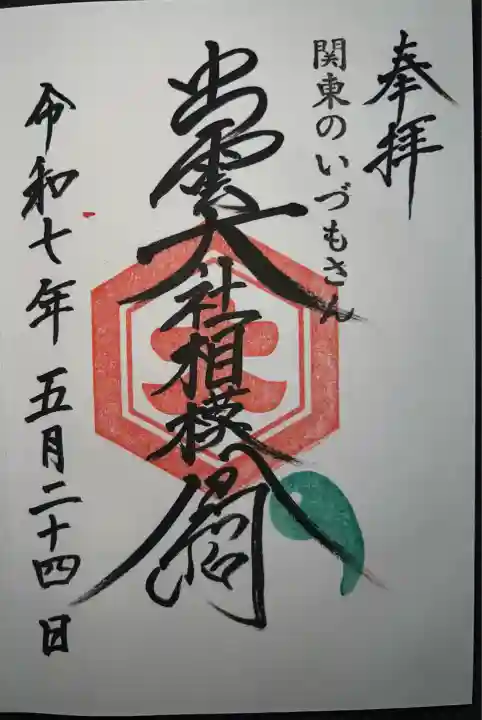 奉拝
関東のいづもさん
出雲大社相模分祠
令和七年五月二十四日